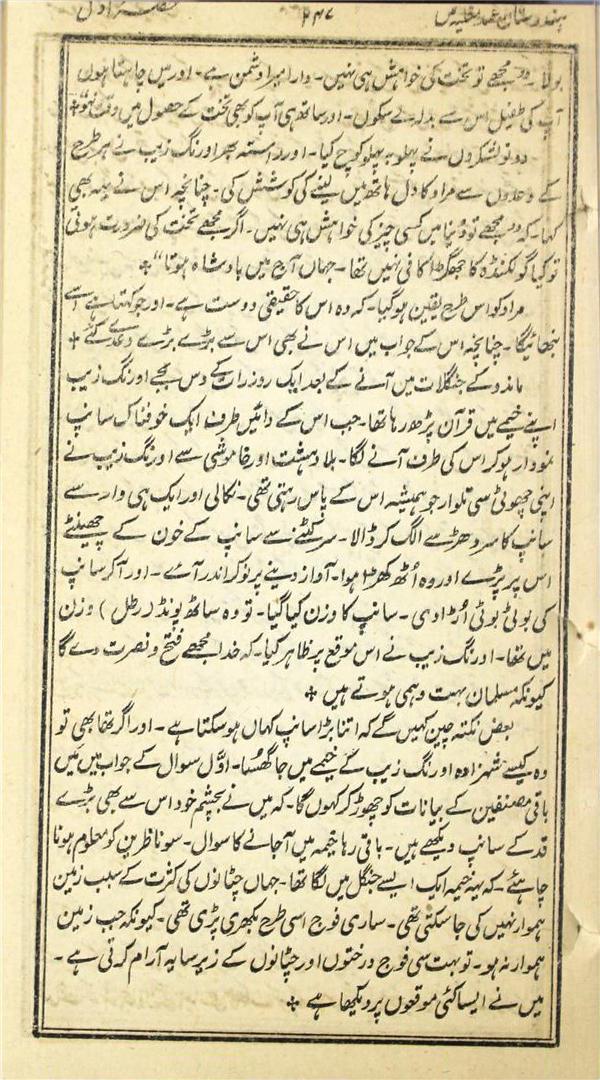 ہندوستان عہد مغلیہ میں ۲۴۷ حصہ اول
بولا۔ "مجھے تو تخت کی خواہش ہی نہیں۔ دارا میرا دشمن ہے۔ اور میں چاہتا ہوں
آپ کی طفیل اس سے بدلہ لے سکوں۔ اور ساتھ ہی آپ کو بھی تخت کے حصول میں دقت نہو"
دونو لشکروں نے پہلو بہ پہلو کوچ کیا۔ اور راستہ بھر اورنگ زیب نے ہر طرح
کے وعدوں سے مراد کا دل ہاتھ میں لینے کی کوشش کی۔ چنانچہ اس نے یہہ بھی
کہا۔ کہ "مجھے تو دنیا میں کسی چیز کی خواہش ہی نہیں۔ اگر مجھے تخت کی ضرورت ہوتی
تو کیا گولکنڈہ کا جھگڑا کافی نہیں تھا۔ جہاں آج میں بادشاہ ہوتا"
مراد کو اس طرح یقین ہوگیا۔ کہ وہ اس کا حقیقی دوست ہے۔ اور جو کہتا ہے اسے
نبھائیگا۔ چنانچہ اس کے جواب میں اس نے بھی اس سے بڑے بڑے وعدے کئے
مانڈو کے جنگلات میں آنے کے بعد ایک روز رات کے دس بجے اورنگ زیب
اپنے خیمے میں قرآن پڑھ رہا تھا۔ جب اس کے دائیں طرف ایک خوفناک سانپ
نمودار ہوکر اس کی طرف آنے لگا۔ بلا دہشت اور خاموشی سے اورنگ زیب نے
اپنی چھوٹی سی تلوار جو ہمیشہ اس کے پاس رہتی تھی۔ نکالی اور ایک ہی وار سے
سانپ کا سر دھڑ سے الگ کر ڈالا۔ سر کٹنے سے سانپ کے خون کے چھینٹے
اس پر پڑے اور وہ اُٹھ کھڑا ہوا۔ آواز دینے پر نوکر اندر آئے۔ اور آکر سانپ
کی بوٹی بوٹی اڑا دی۔ سانپ کا وزن کیا گیا۔ تو وہ ساٹھ پونڈ (رطل) وزن
میں تھا۔ اورنگ زیب نے اس موقع پر ظاہر کیا۔ کہ خدا مجھے فتح و نصرت دے گا
کیونکہ مسلمان بہت وہمی ہوتے ہیں
بعض نکتہ چین کہیں گے کہ اتنا بڑا سانپ کہاں ہوسکتا ہے۔ اور اگر تھا بھی تو
وہ کیسے شہزادہ اورنگ زیب کے خیمے میں جا گھسا۔ اوّل سوال کے جواب میں میں
باقی مصنفین کے بیانات کو چھوڑ کر کہوں گا۔ کہ میں نے بچشم خود اس سے بھی بڑے
قد کے سانپ دیکھے ہیں۔ باقی رہا خیمہ میں آجانے کا سوال۔ سو ناظرین کو معلوم ہونا
چاہئے۔ کہ یہہ خیمہ ایک ایسے جنگل میں لگا تھا۔ جہاں چٹانوں کی کثرت کے سبب زمین
ہموار نہیں کی جا سکتی تھی۔ ساری فوج اسی طرح بکھری پڑی تھی۔ کیونکہ جب زمین
ہموار نہ ہو۔ تو بہت سی فوج درختوں اور چٹانوں کے زیر سایہ آرام کرتی ہے۔
میں نے ایسا کئی موقعوں پر دیکھا ہے